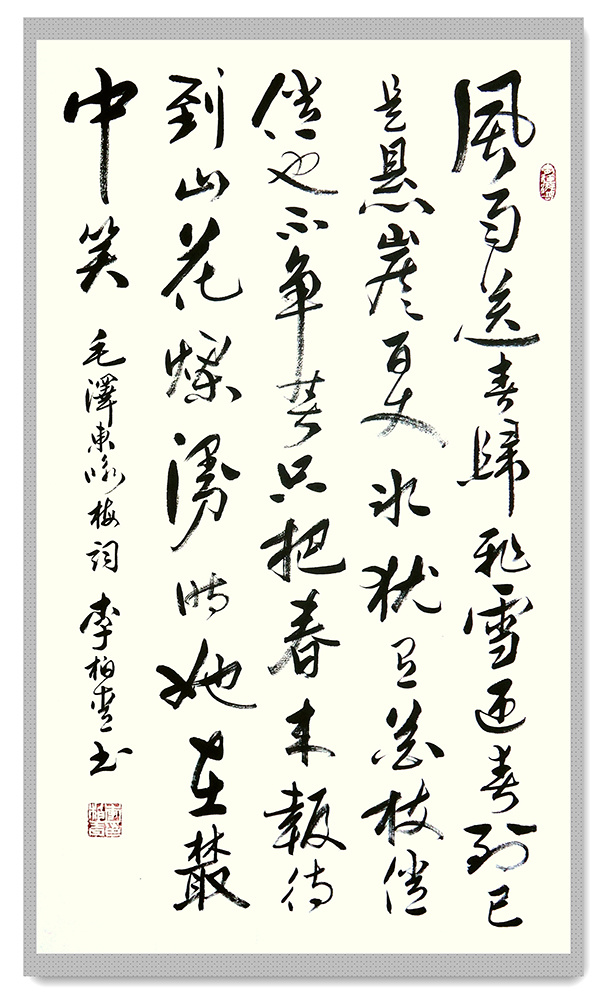 風雨送春歸飛雪迎春到已
是懸崖百丈冰犹有花枝俏
俏也不争春只把春来報待
到山花爛漫时她在叢
中笑 毛澤東咏梅詞 李柏书